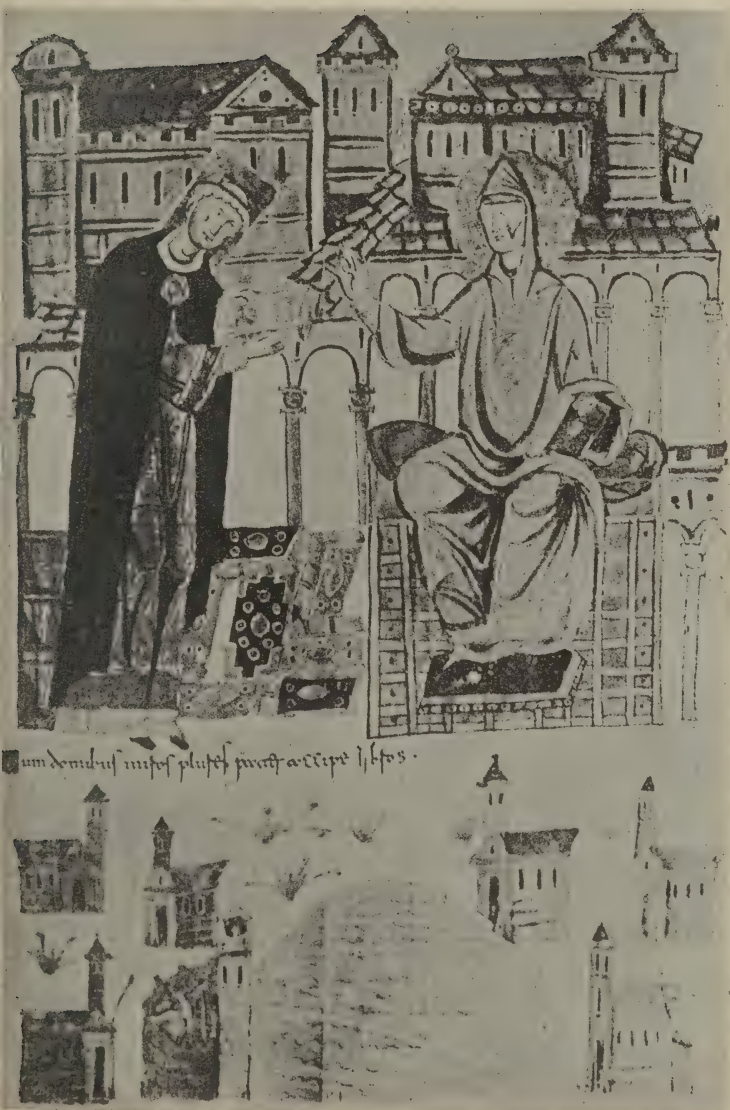 Cum domibus miros plures pater accipe libros ·